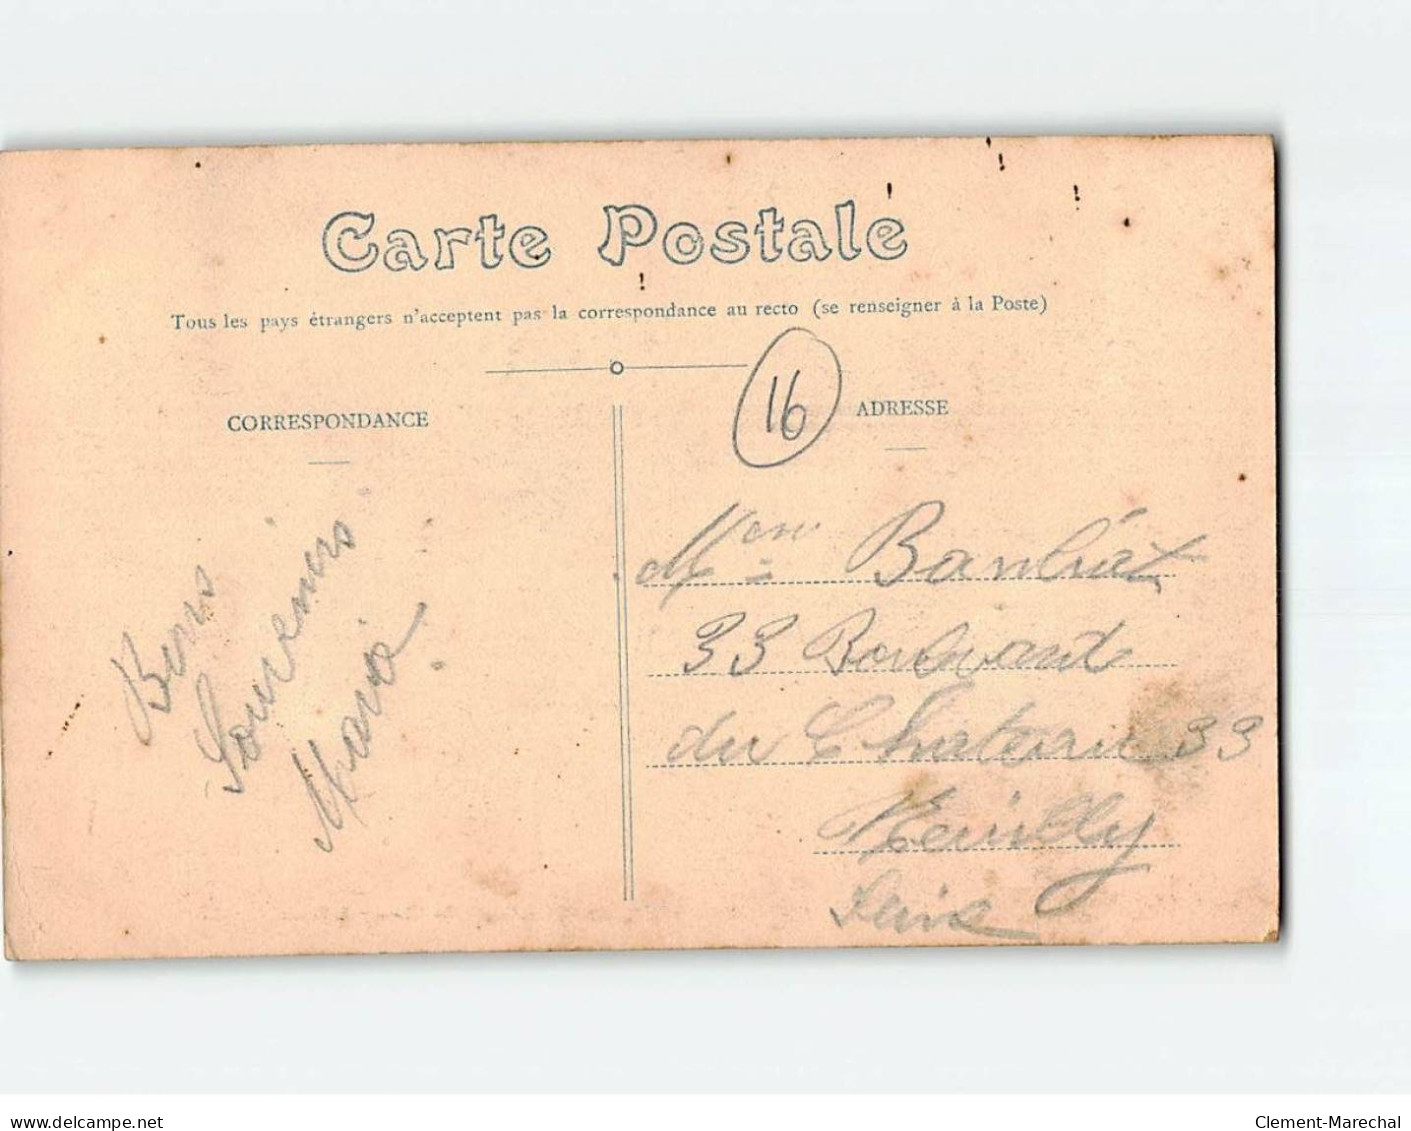 Carte Postale
Tous les pays étrangers n'acceptent pas la correspondance au recto (se renseigner à la Poste)
CORRESPONDANCE
16
ADRESSE
Bons
Souvenirs
Maria
33 Boulevard
du Chateau 33
Neuilly
Seine
www.delcampe.net
Clement-Marechal